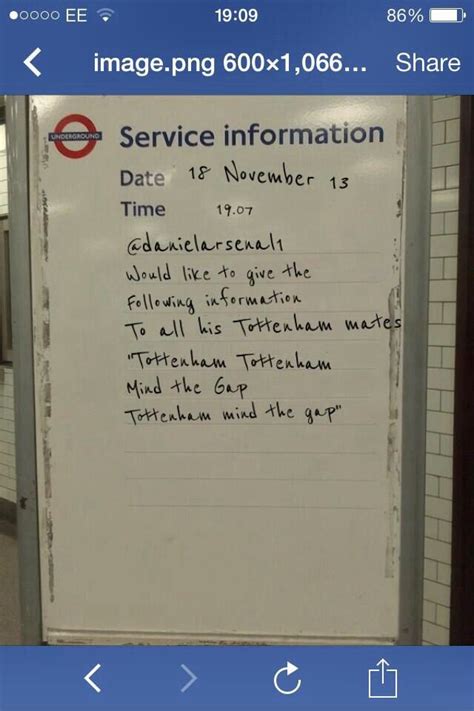 EE 19:09 86%
image.png 600×1,066... Share
UNDERGROUND
Service information
Date 18 November 13
Time 19.07
@danielarsenal1
Would like to give the
Following information
To all his Tottenham mates
"Tottenham Tottenham
Mind the Gap
Tottenham mind the gap"